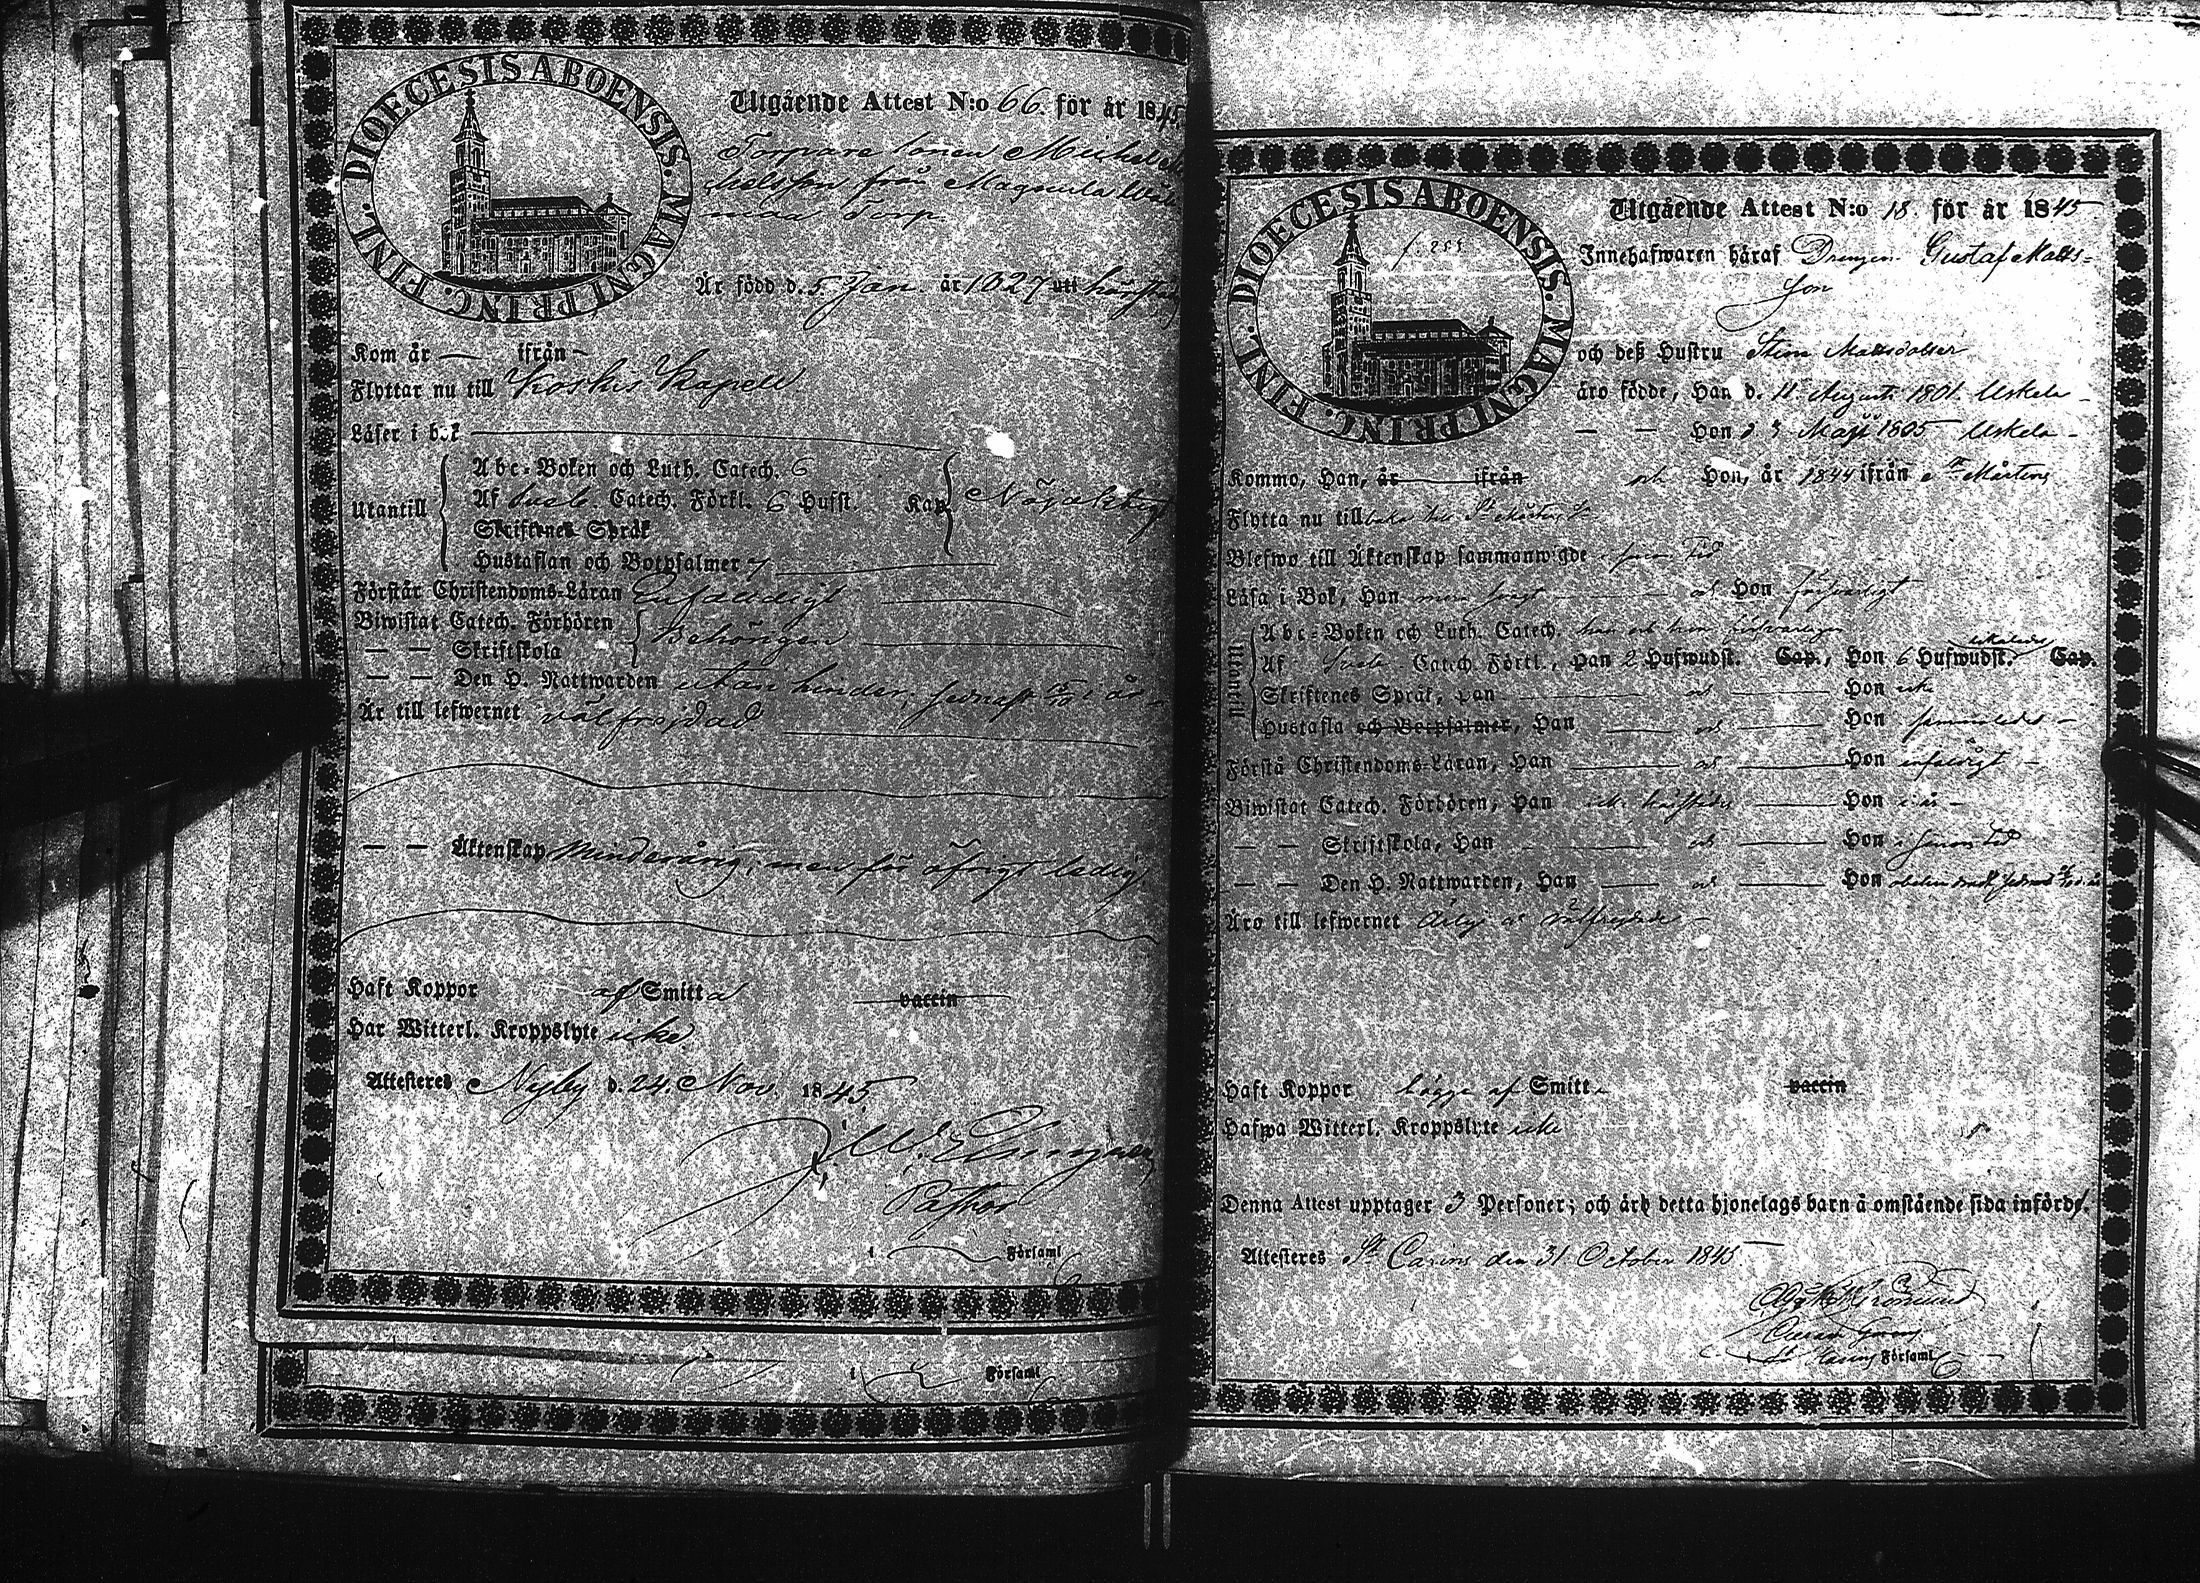 DIOECESIS ABOENSIS. MAGNI PRINC. FINL.
Utgående Attest N:o 66. för år 1845
Torpare sonen Michel
helsson från Magnula
maa Torp.
Är född d. 5 Jan. år 1827 utt härstädes
Kom år — ifrån —
Flyttar nu till Koskis Kapell
Läser i bok
Utantill
Abc-Boken och Luth. Catech. 6
Af Sveb. Catech. Förkl. 6 Hufst. Kap. Nöjaktigt
Skriftenes Språk
Hustaflan och Botpsalmer 7
Förstår Christendoms-Läran Enfaldigt
Biwistat Catech. Förhören
— — Skriftskola Behörigen
— — Den H. Nattwarden utan hinder, sednast i år
Är till lefwernet välfrejdad
— — Äktenskap Minderårig, men för öfrigt ledig.
Haft Koppor af Smitta vaccin
Har Witterl. Kroppslyte icke
Attesteras Nyby d. 24. Nov. 1845.
Pastor
i Församl
i Församl
DIOECESIS ABOENSIS. MAGNI PRINC. FINL.
f. 255
Utgående Attest N:o 18. för år 1845
Innehafwaren häraf Drengen Gustaf Matts-
son
och deß Hustru Stina Mattsdotter
äro födde, Han d. 11 Augusti 1801. Uskela —
— — Hon d. 3 Maji 1805 Uskela —
Kommo, Han, år ifrån och Hon, år 1844 ifrån St Mårtens
Flytta nu tillbaka till St Mårtens
Blefwo till Äktenskap sammanwigde i sinom Tid
Läsa i Bok, Han men svagt — och Hon försvarligt
Utantill
Abc-Boken och Luth. Catech. han och hon försvarligen
Af Sveb. Catech. Förkl., Han 2 Hufwudst. Cap., Hon 6 Hufwudst. Cap.
Skriftenes Språk, Han — och — Hon icke
Hustafla och Botpsalmer, Han — och — Hon sammaledes —
Förstå Christendoms-Läran, Han — och — Hon enfaldigt —
Biwistat Catech. Förhören, Han icke härstädes — Hon i år —
— — Skriftskola, Han — och — Hon i sinom tid
— — Den H. Nattwarden, Han — och — Hon obehindradt, sednast i år
Äro till lefwernet ärlige och välfrejdade —
Haft Koppor bägge af Smitta vaccin
Hafwa Witterl. Kroppslyte icke
Denna Attest upptager 3 Personer; och äro detta hjonelags barn å omstående sida införde.
Attesteras St Carins den 31 October 1845
St Karins Församl